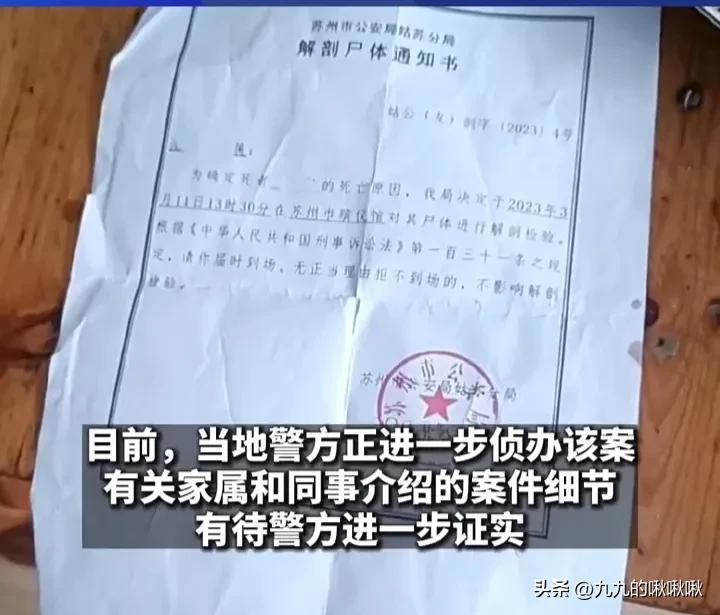 苏州市公安局姑苏分局
解剖尸体通知书
姑公（ ）剖字〔2023〕4号
为确定死者 的死亡原因，我局决定于2023年3
月11日13时30分在苏州市殡仪馆对其尸体进行解剖检验。
根据《中华人民共和国刑事诉讼法》第一百三十一条之规
定，请你届时到场，无正当理由拒不到场的，不影响解剖
检验。
苏州市公安局姑苏分局
苏州市公 局
目前，当地警方正进一步侦办该案
有关家属和同事介绍的案件细节
有待警方进一步证实
头条 @九九的啾啾啾